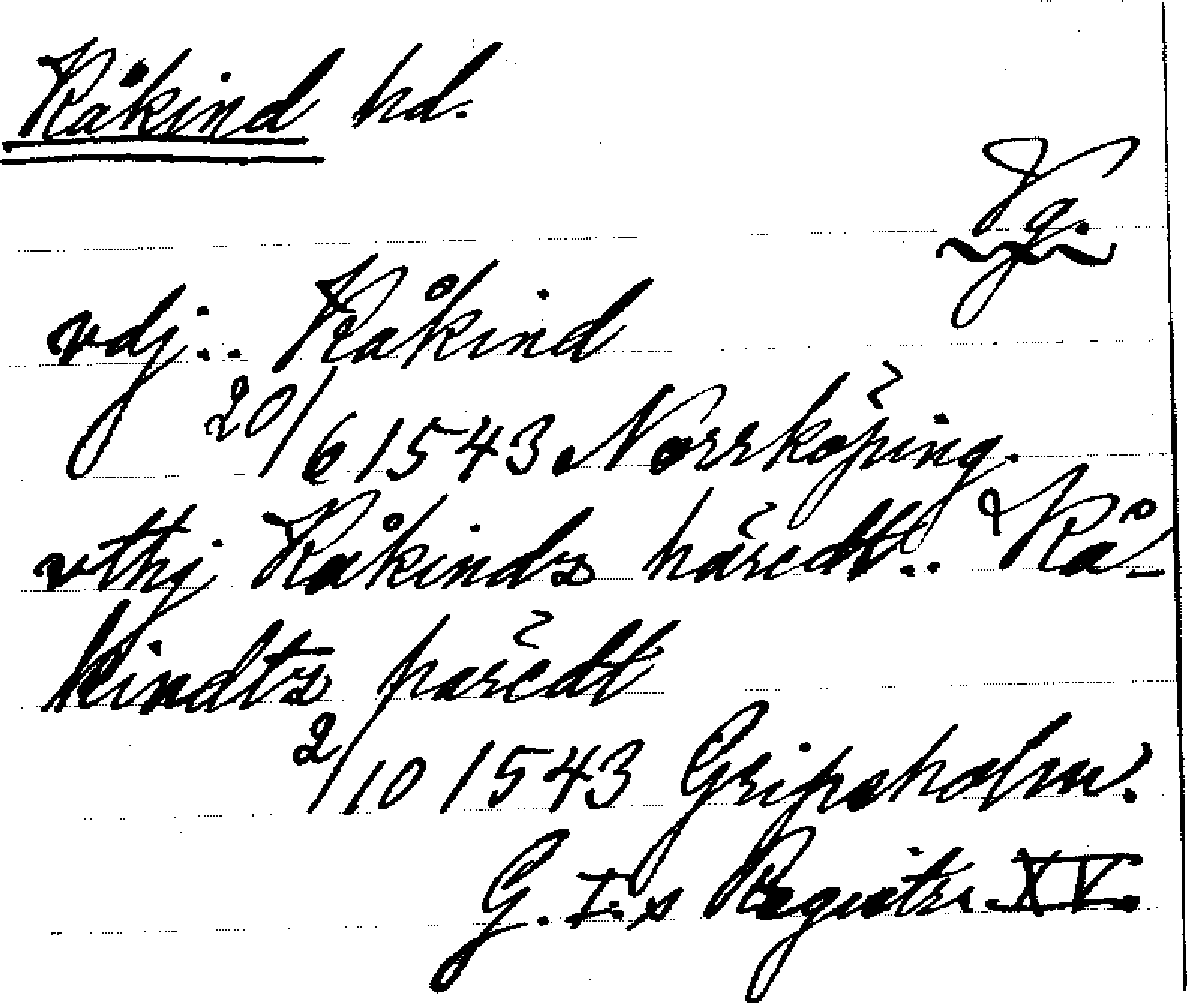 Kåkind hd.
Vg.
vdj.. Kåkind
20/6 1543 Norrköping.
vthj Kåkinds häredt.. Kå-
kindts häredt
2/10 1543 Gripsholm.
G. I:s Registr. XV.